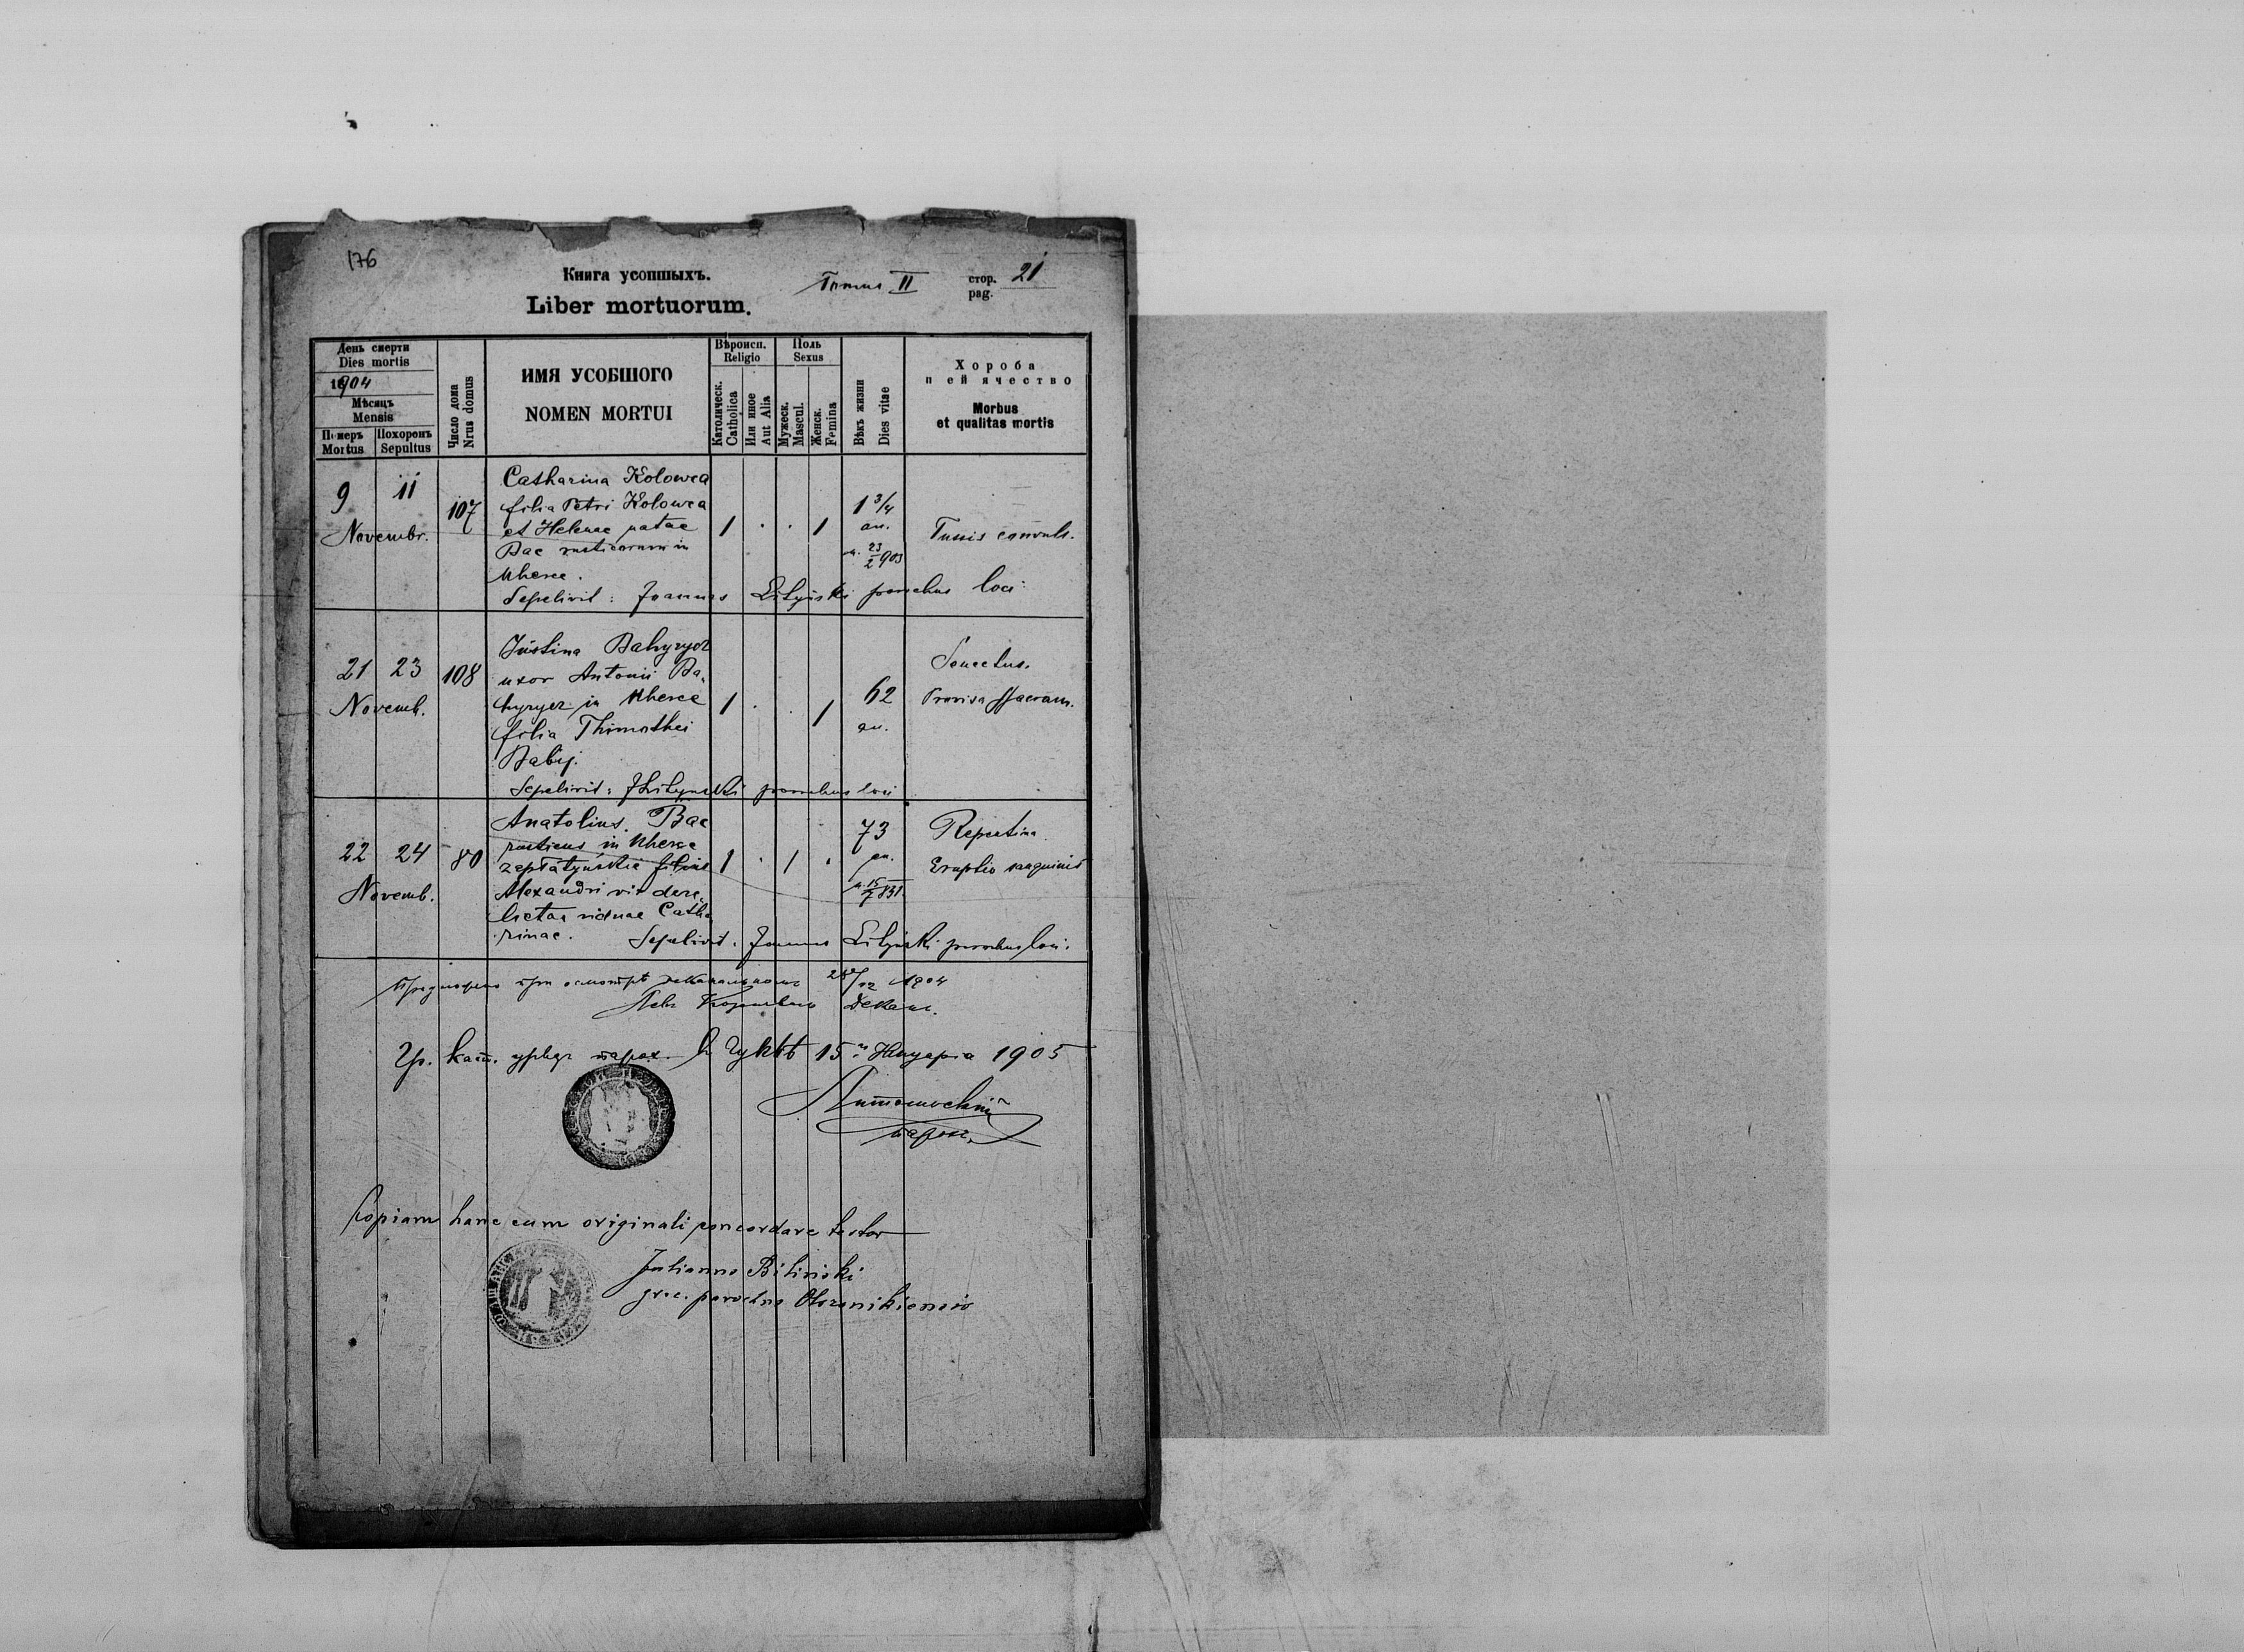 176
Книга усопшыхъ.
Liber mortuorum.
Tomus II
стор. pag. 21
День смерти
Dies mortis
1904
Мѣсяцъ
Mensis
Померъ Mortus
Похоронъ Sepultus
Число дома
Nrus domus
ИМЯ УСОБШОГО
NOMEN MORTUI
Вѣроисп.
Religio
Католическ.
Catholica
Или иное
Aut Alia
Поль
Sexus
Мужеск.
Mascul.
Женск.
Femina
Вѣкъ жизни
Dies vitae
Хороба
п ей ячество
Morbus
et qualitas mortis
9 11
Novembr.
107
Catharina Kolowca
filia Petri Kolowca
et Helenae natae
Bac rusticorum in
Uherce.
1 . . 1
1 3/4
an.
n. 23/2 903
Tussis convuls.
Sepelivit: Joannes Lityński parochus loci
21 23
Novemb.
108
Justina Bahyrycz
uxor Antonii Ba-
hyrycz in Uherce
filia Thimothei
Babij.
1 . . 1
62
an.
Senectus.
Provisa SSacram.
Sepelivit: JLityński parochus loci
22 24
Novemb.
80
Anatolius Bac
rusticus in Uherce
zapłatyńskie filius
Alexandri vir dere-
lictae viduae Catha
rinae.
1 . 1 .
73
an.
Repentina
Eruptio sanguinis
Sepelivit: Joannes Lityński parochus loci.
при осмотрѣ деканальномъ 28/12 1904
Левъ Деканъ.
Гр. кат. урядъ парох. 15 Януарія 1905
парохъ
Copiam hanc cum originali concordare testor
Julianus Biliński
gr. c. parochus